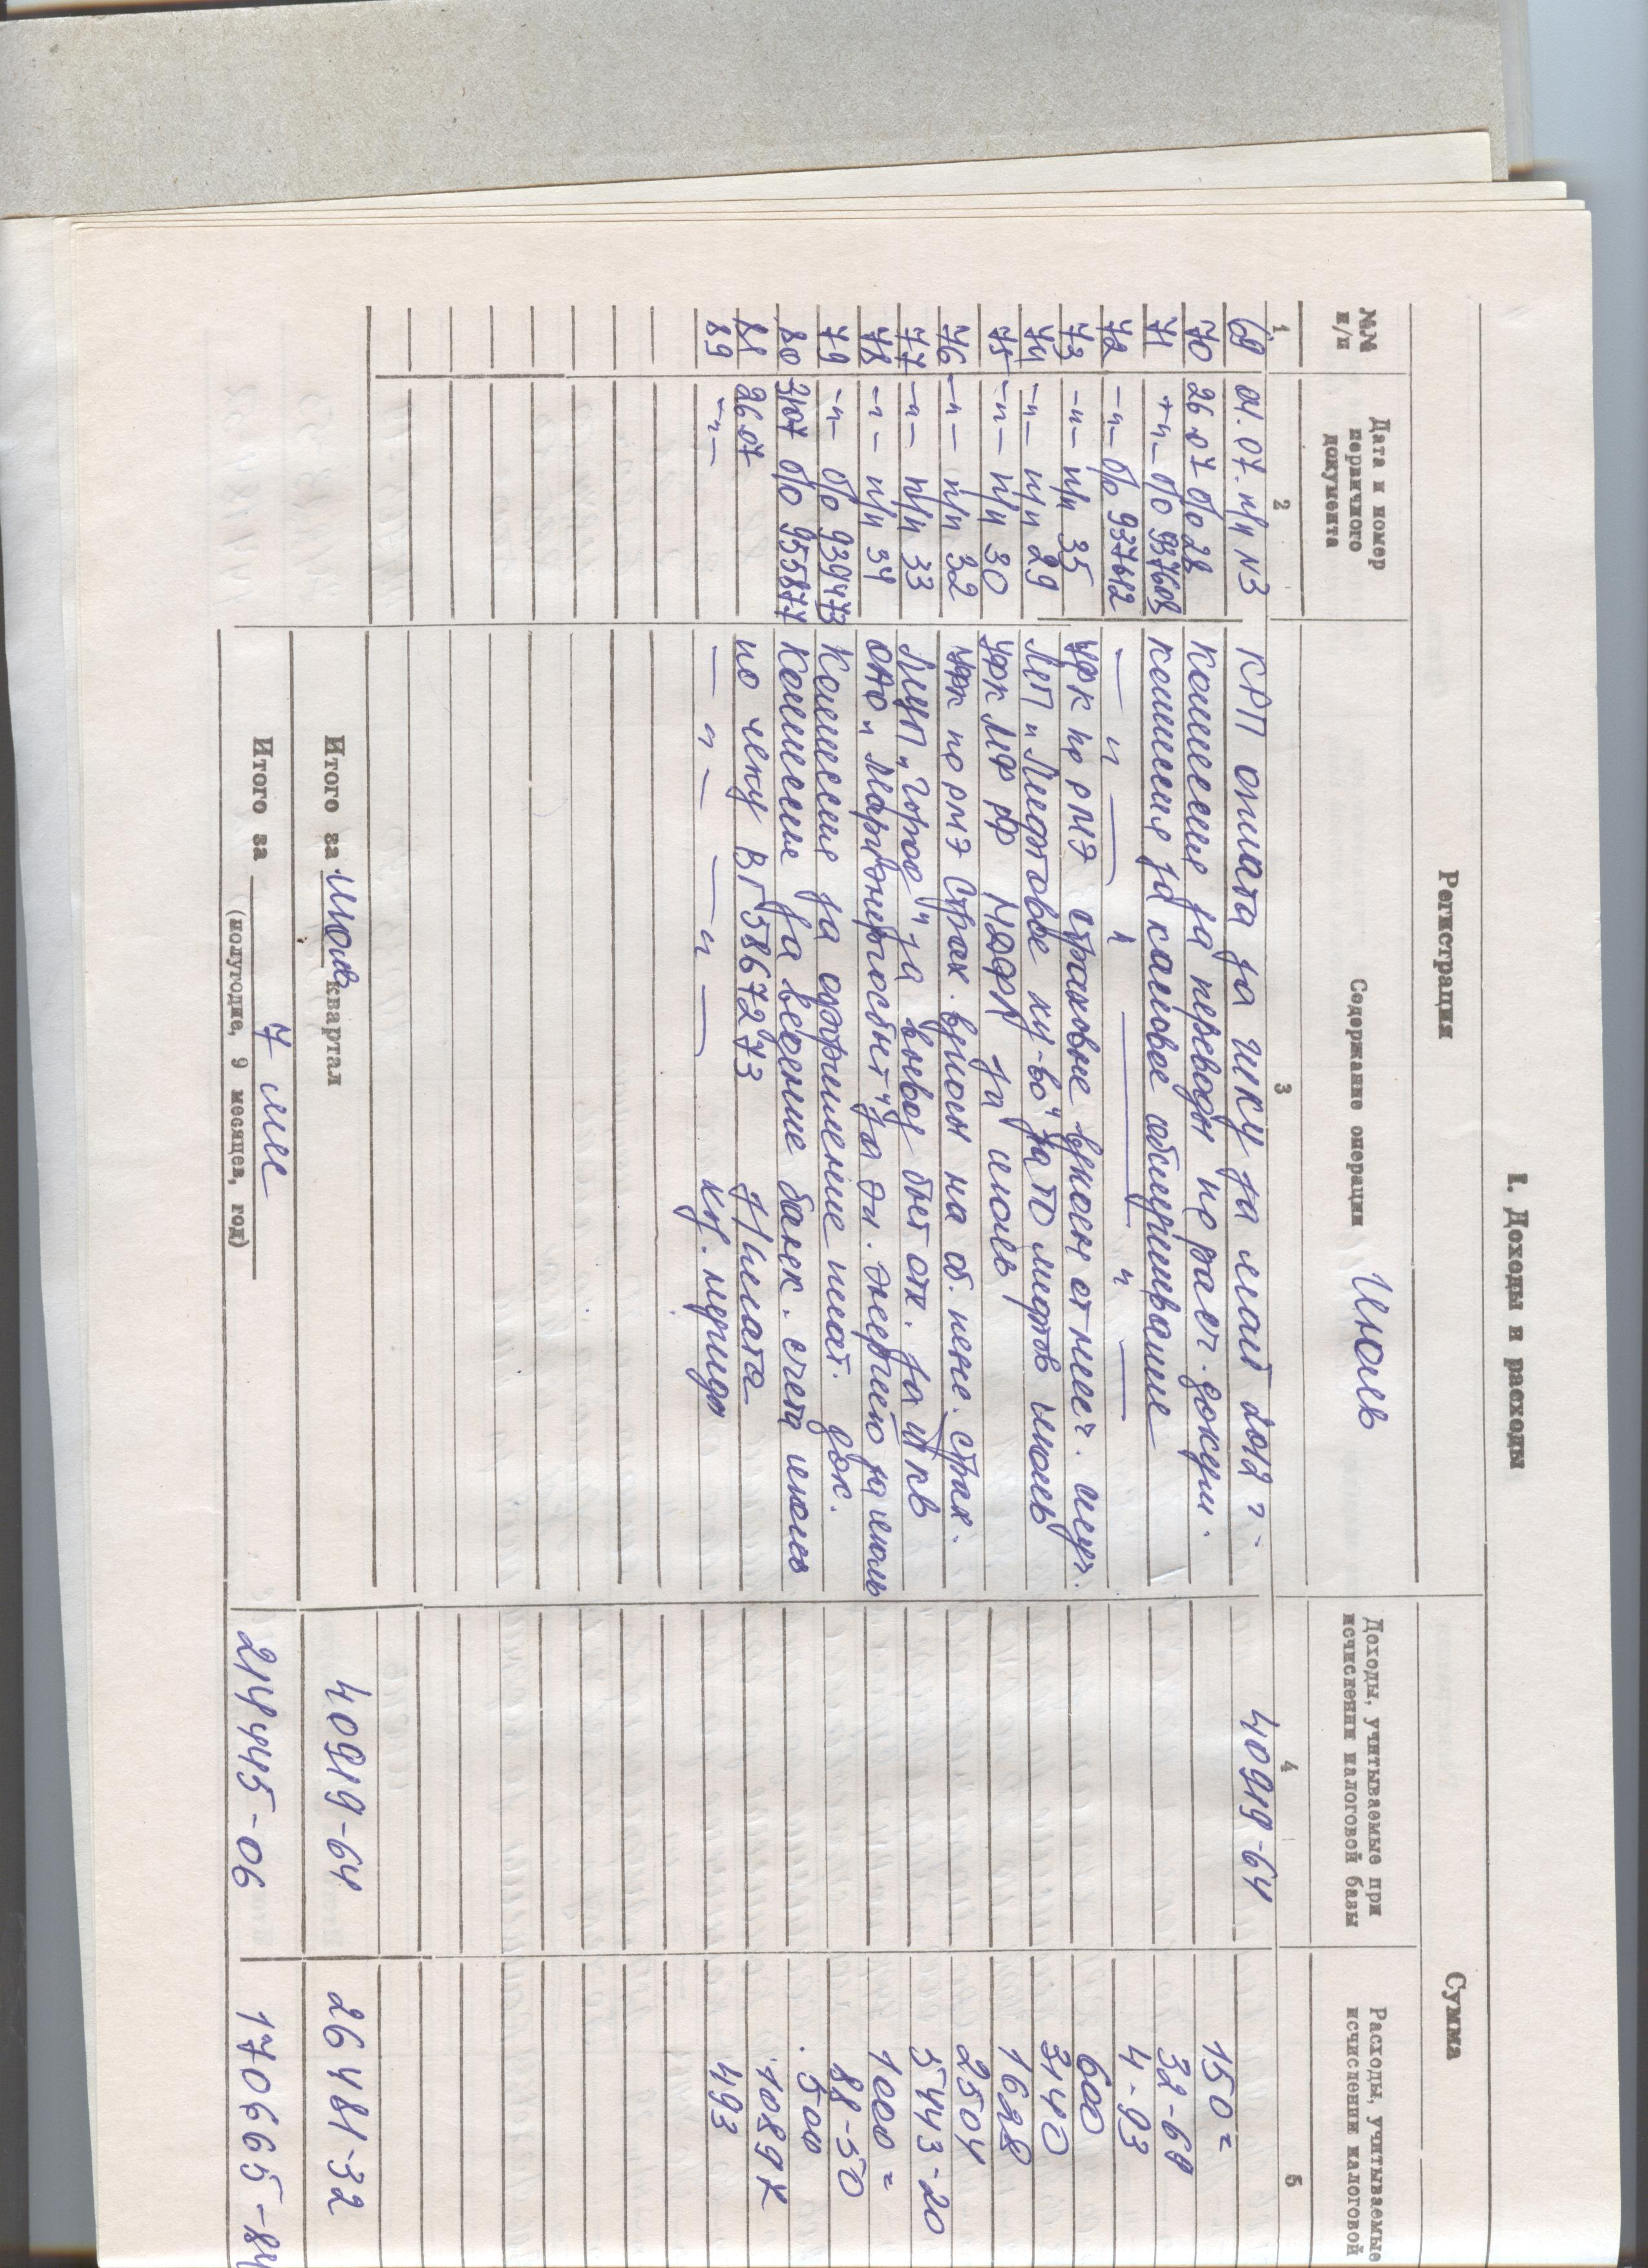 I. Доходы и расходы
Регистрация Сумма
№№ п/п Дата и номер первичного документа Содержание операции Июль Доходы, учитываемые при исчислении налоговой базы Расходы, учитываемые исчислении налоговой
1 2 3 4 5
69 04.07. п/п N3 КРП оплата за ЖКУ за май 2012 г. 40919-64
70 26.07 б/о 28 Комиссия за перевод по расч. докум. 150=
71 -"- б/о 937608 комиссия за кассовое обслуживание 32-68
72 -"- б/о 937612 -"- " " 4-93
73 -"- п/п 35 УФК по РМЭ страховые взносы от несч. случ. 600
74 -"- п/п 29 МП "Лифтовое хоз-во" за ТО лифтов июль 3140
75 -"- п/п 30 УФК МФ РФ НДФЛ за июль 1628
76 -"- п/п 32 УФК по РМЭ Страх. взносы на об. пенс. страх. 2504
77 -"- п/п 33 МУП "Город" за вывоз быт отх. за II кв 5443-20
78 -"- п/п 34 ОАО "Мариэнергосбыт" за эл. энергию за июль 1000=
79 -"- б/о 939473 Комиссия за оформление плат. док. 88-50
80 31.07 б/о 955877 Комиссия за ведение банк. счета июль 500
88 26.07 по чеку ВГ5867273 з/плата 10897
89 -"- -"- -"- хоз. нужды 493
Итого за июль квартал 40919-64 26481-32
Итого за 7 мес 214445-06 170665-84
(полугодие, 9 месяцев, год)